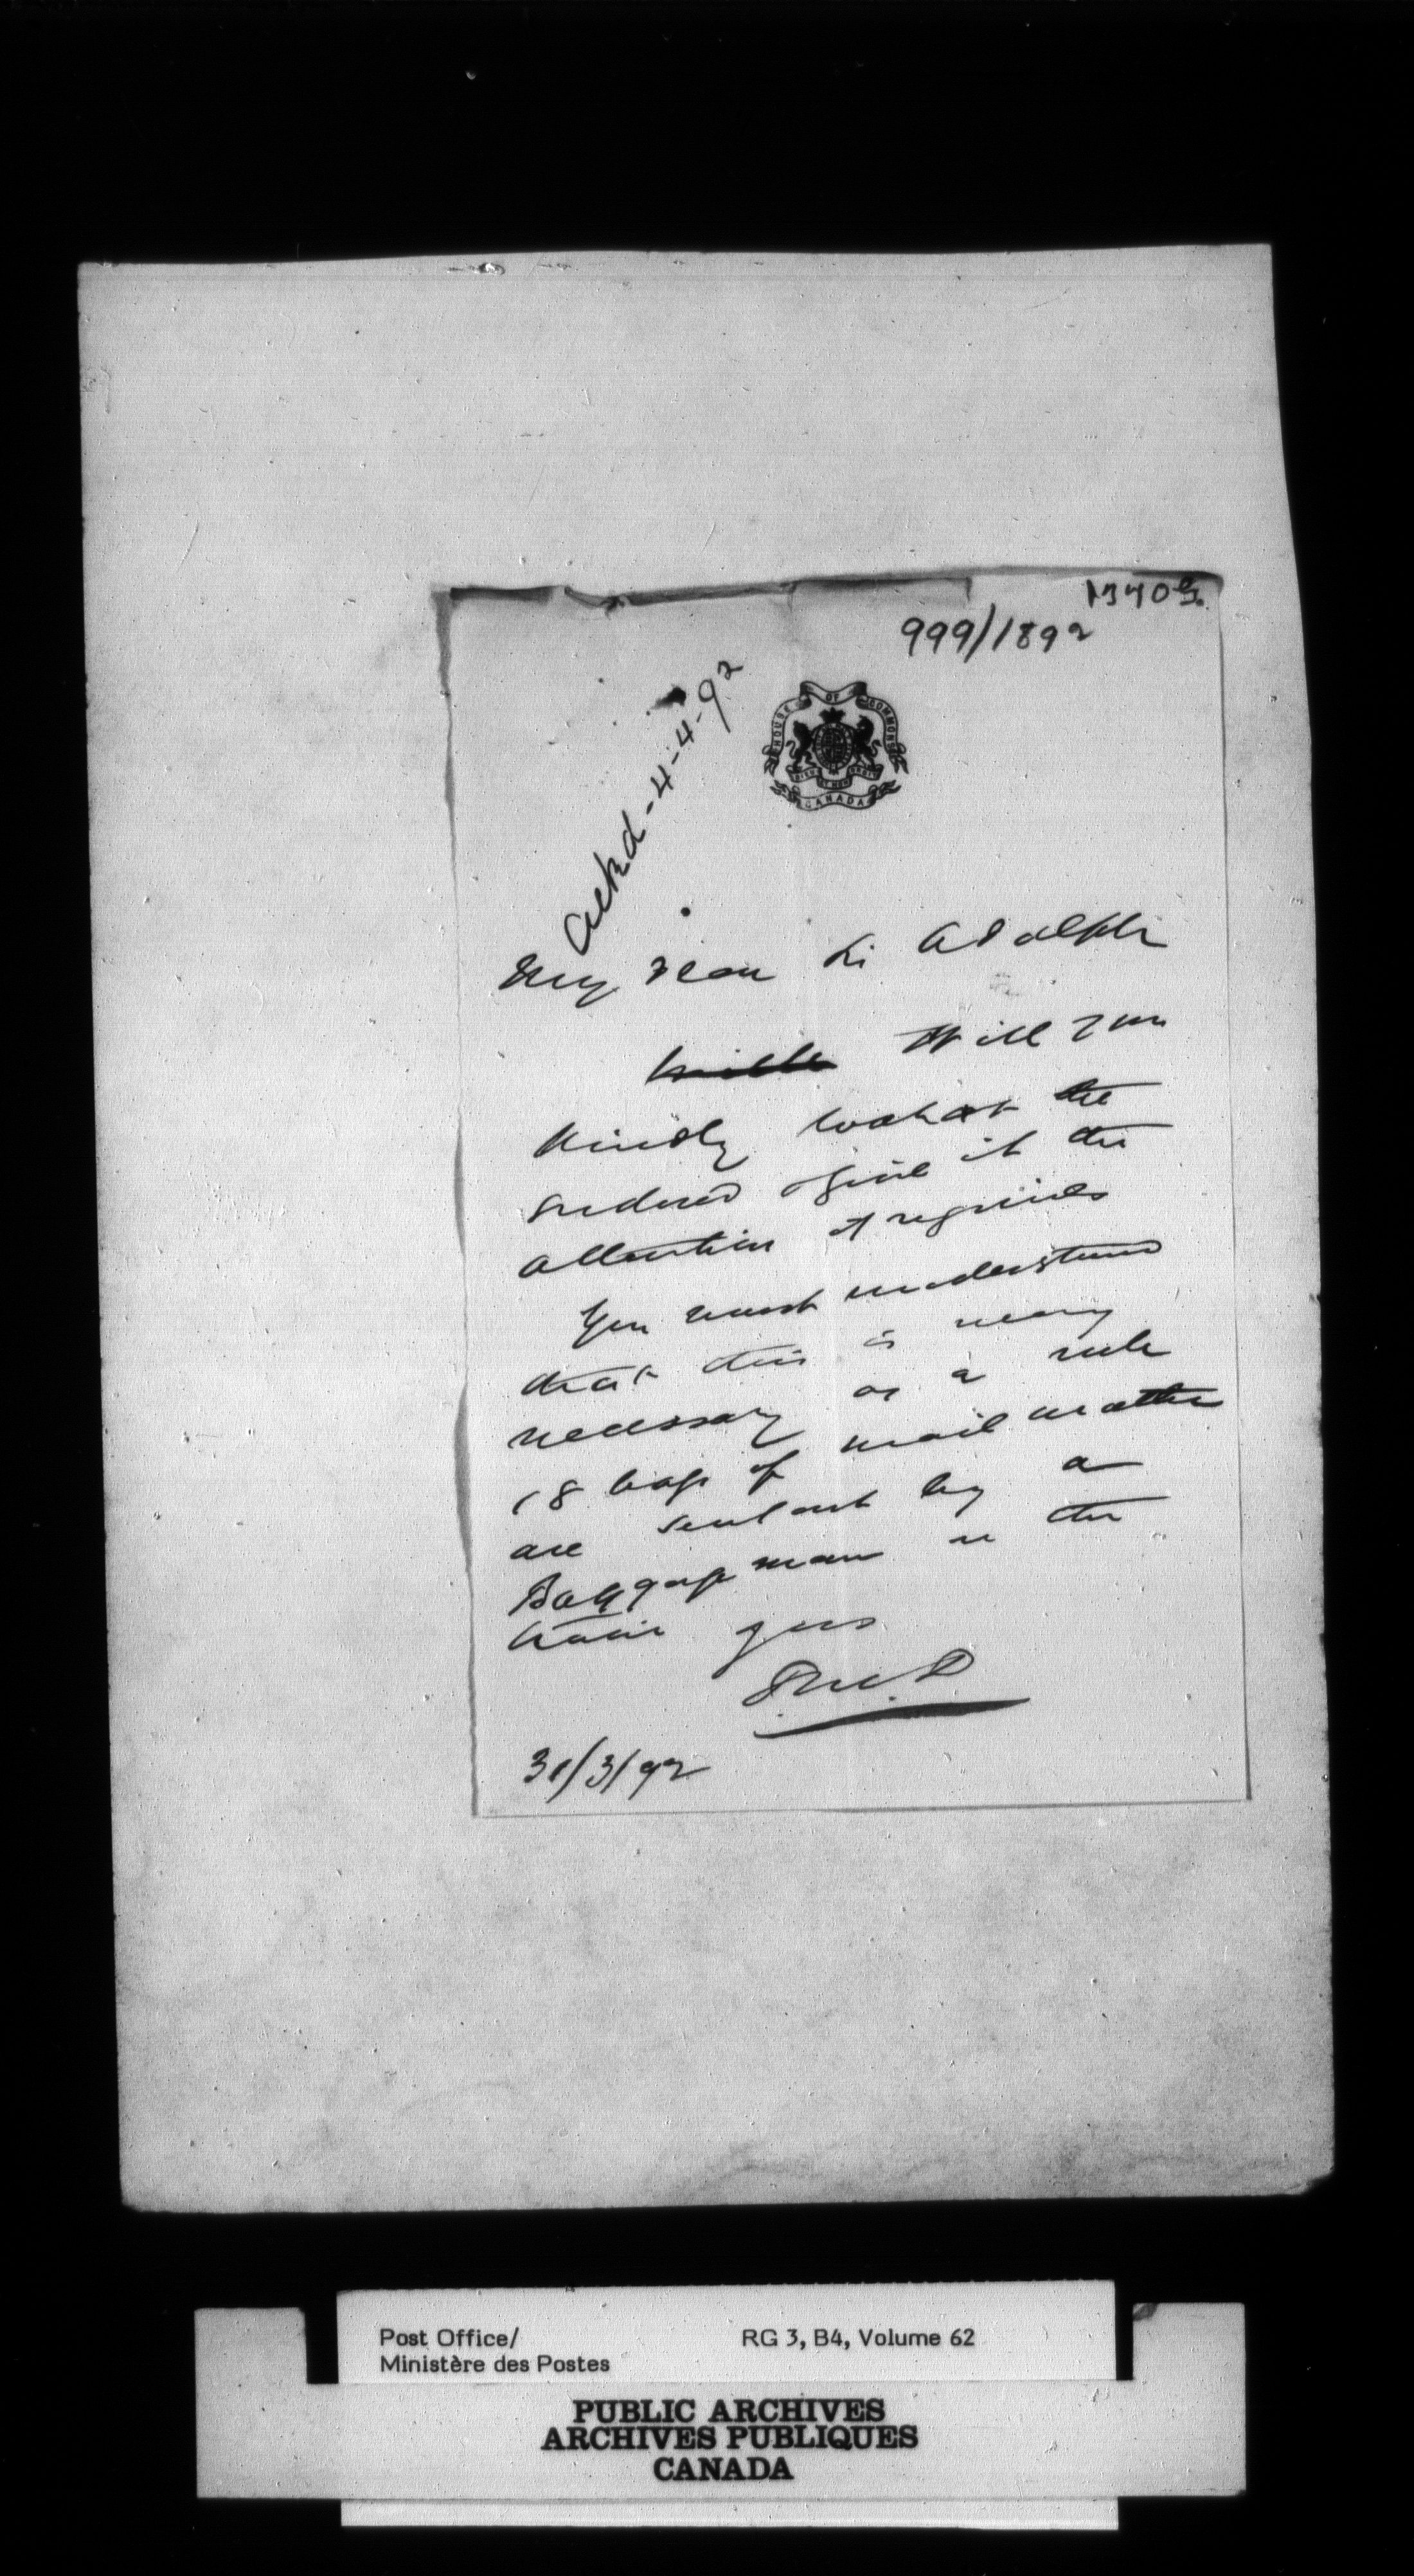 1340G.
999/1892
Ackd-4-4-92
HOUSE OF COMMONS
DIEU ET MON DROIT
CANADA
My dear Sir Adolphe
Will you
kindly look at the
endorsed & give it the
attention it requires
You must understand
that this is very
necessary as a rule
18 bags of mail matter
are sent out by a
Baggage man in the
train
31/3/92
Post Office/
Ministère des Postes
RG 3, B4, Volume 62
PUBLIC ARCHIVES
ARCHIVES PUBLIQUES
CANADA